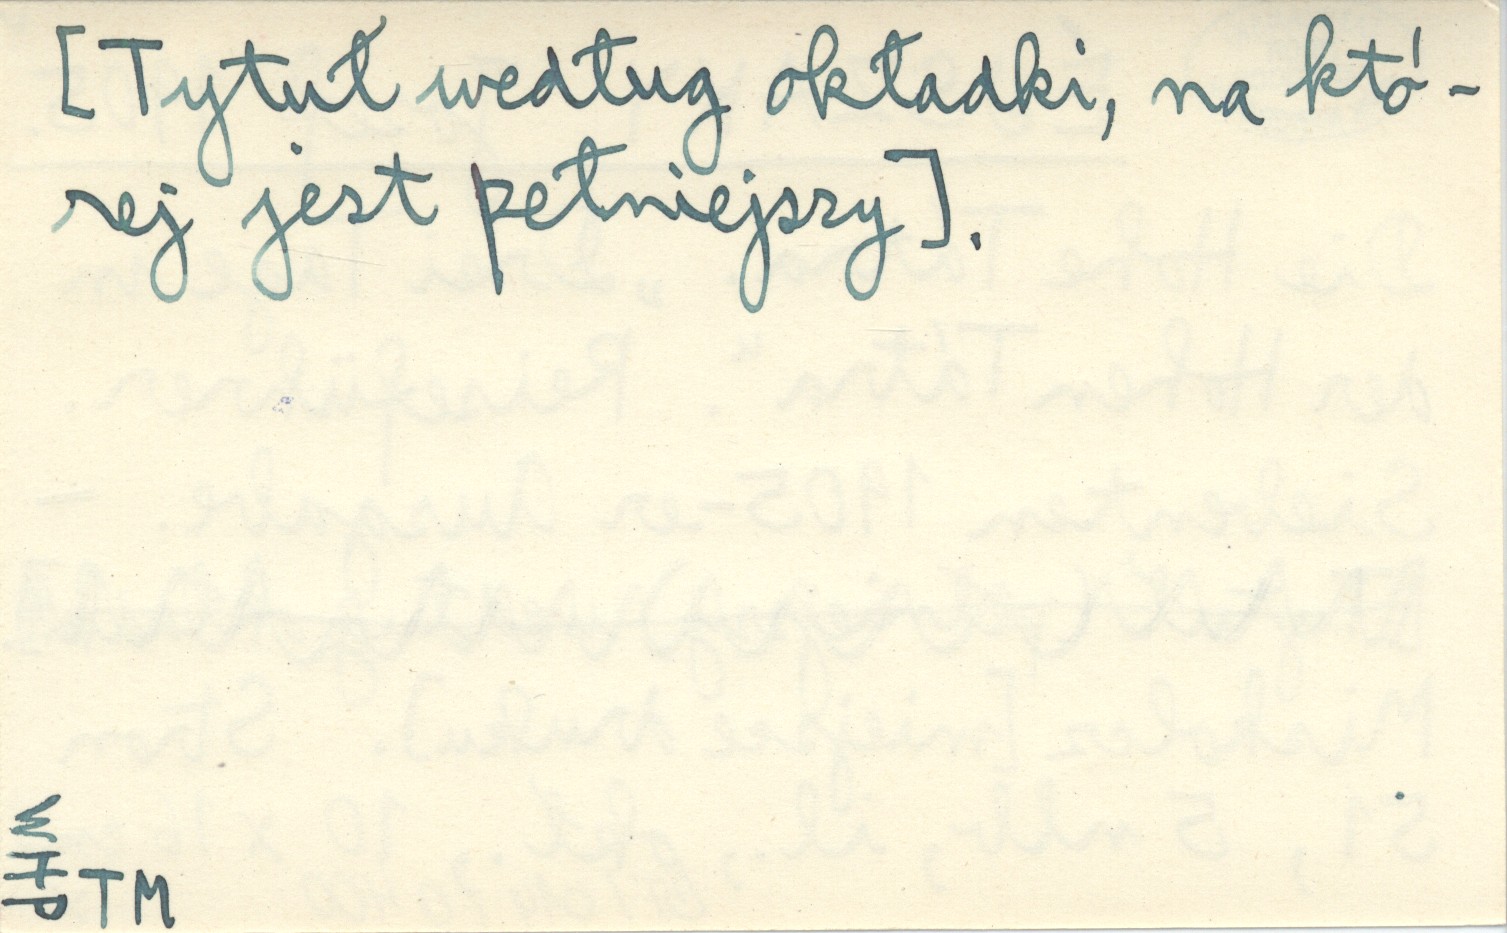 [Tytuł według okładki, na któ-
rej jest pełniejszy].
WHP
TM